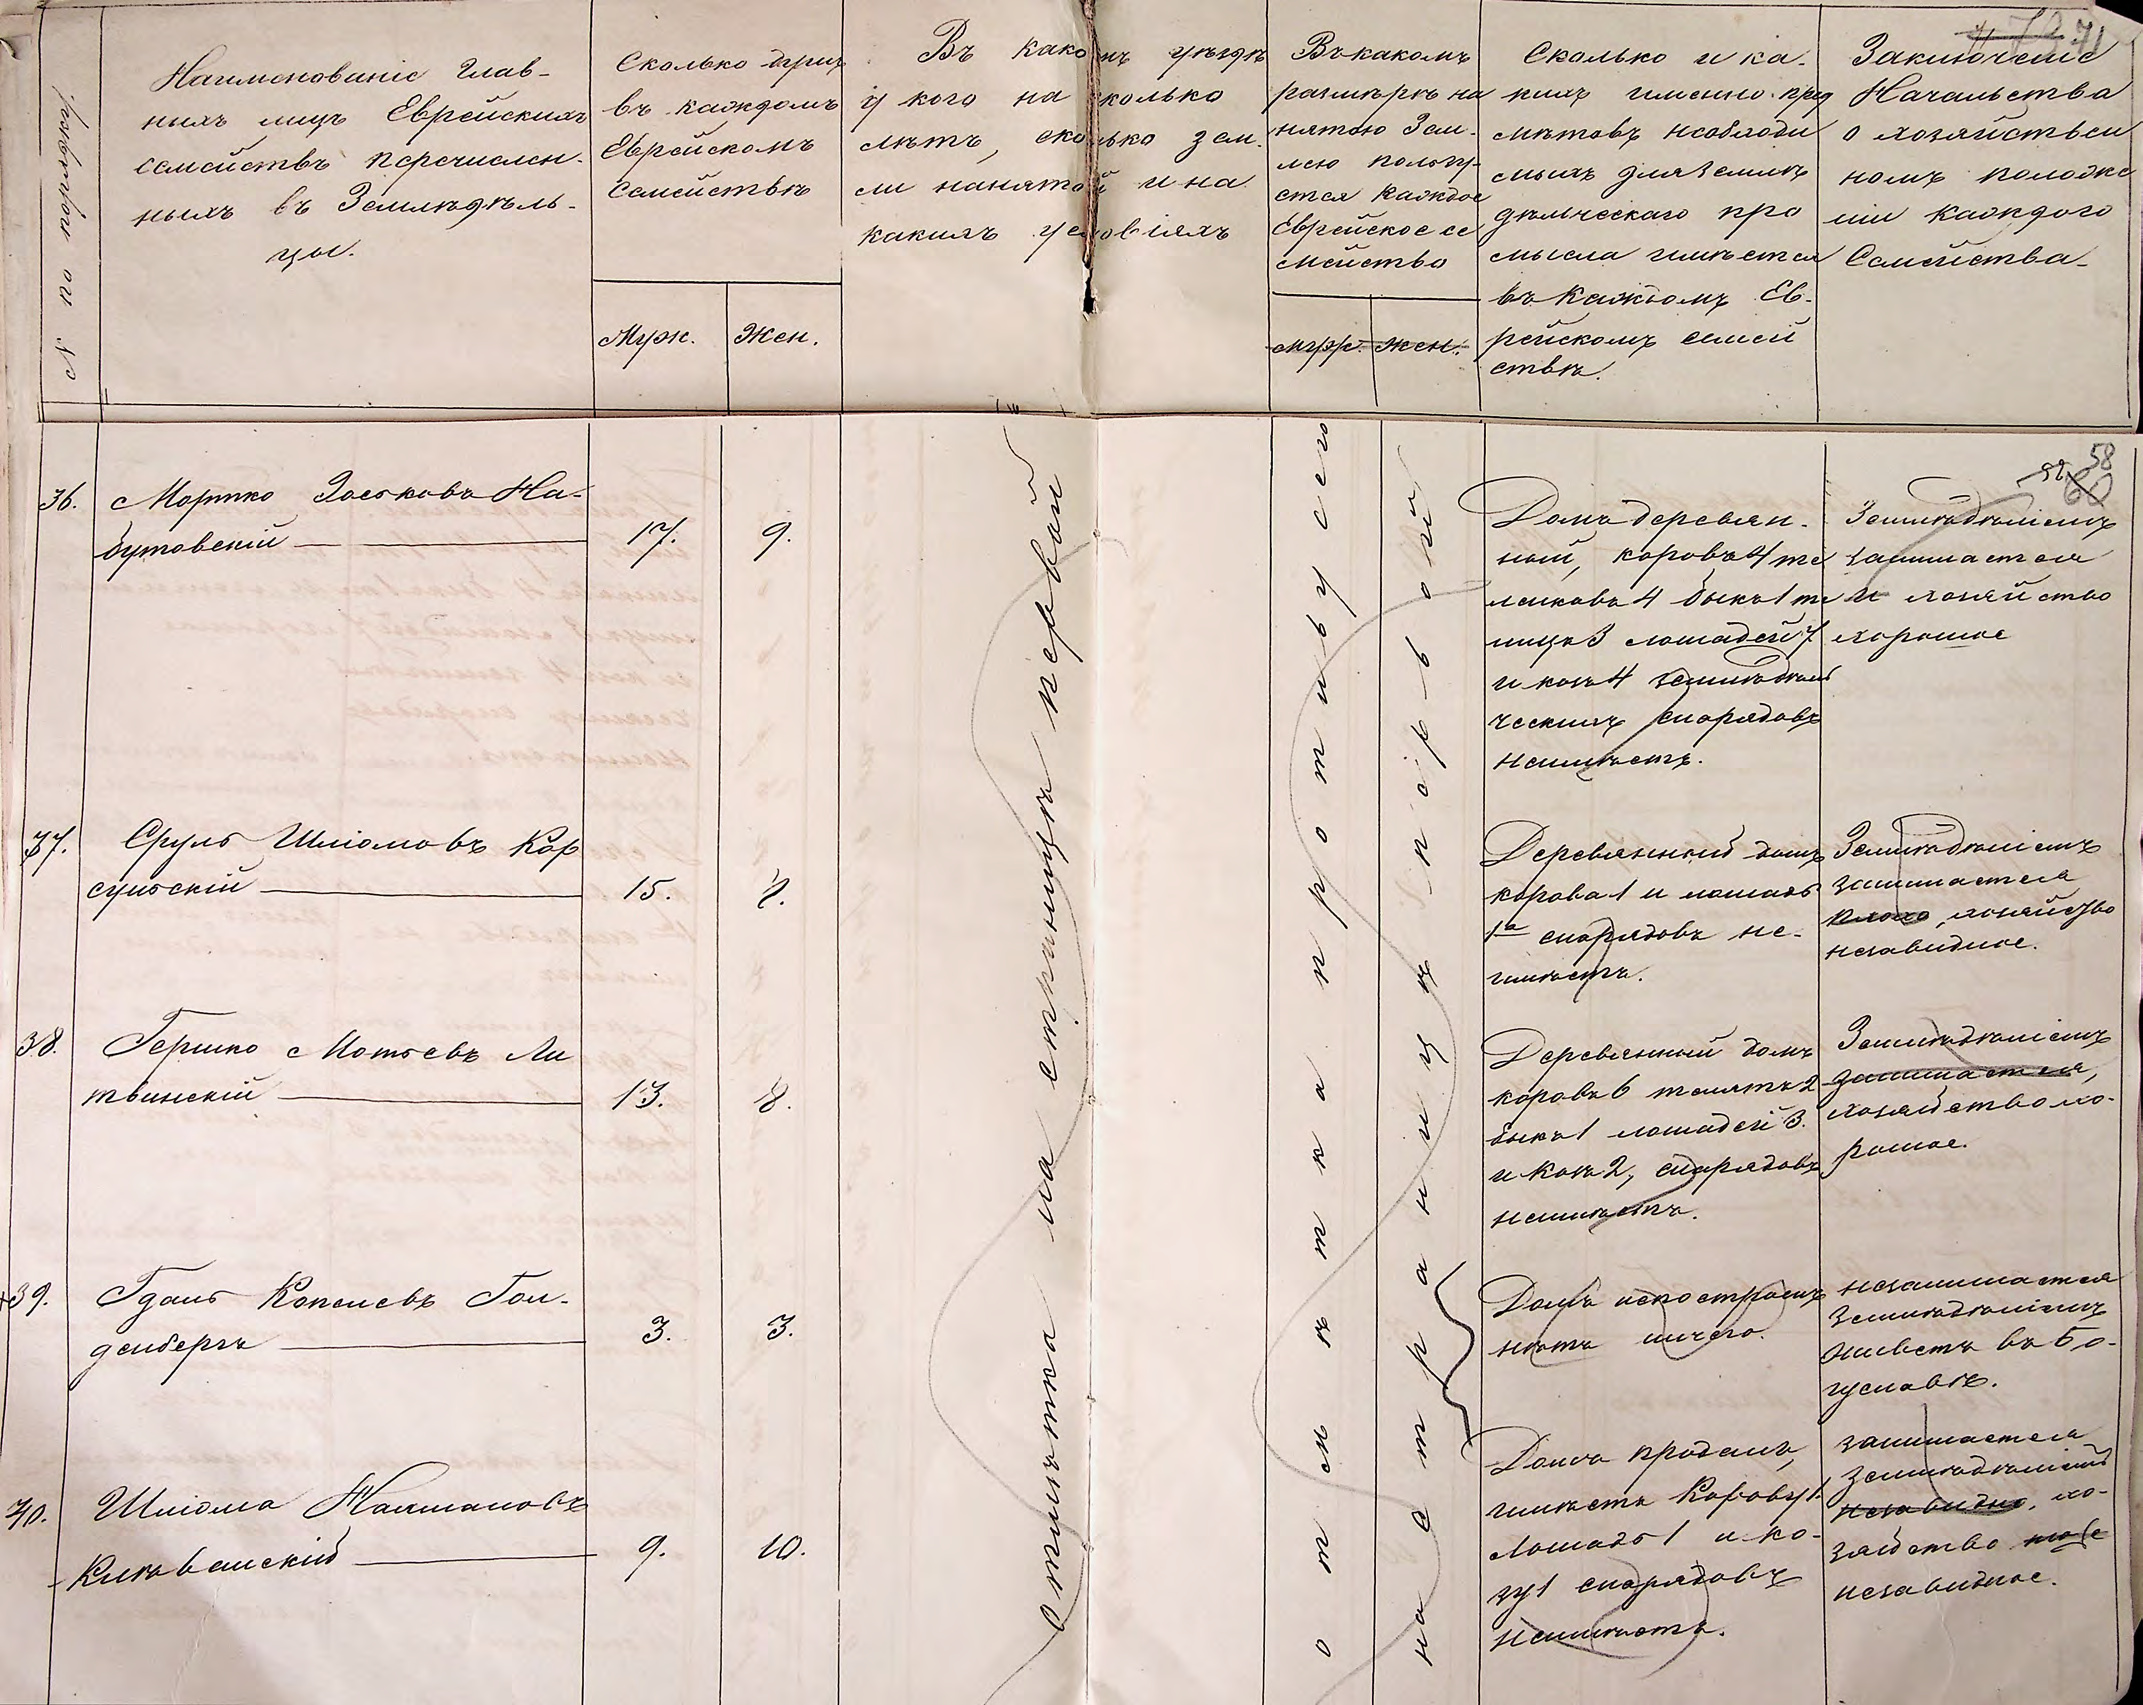 № по порядку.
Наименованіе Глав-
ныхъ лицъ Еврейскихъ
семействъ перечислен-
ныхъ въ Земледѣль-
цы.
Сколько душъ
въ каждомъ
Еврейскомъ
Семействѣ
Муж.
Жен.
Въ какомъ уѣздѣ
у кого на сколько
лѣтъ, сколько зем.
ли нанятой и на
какихъ условіяхъ
Въ какомъ
размѣрѣ на
нятою Зем-
лею пользу-
ется каждое
Еврейское се
мейство
муж.
жен.
Сколько и ка-
кихъ именно пред
мѣтовъ необходи
мыхъ для земле
дѣльческаго про
мысла имѣется
въ каждомъ Ев-
рейскомъ семей
ствѣ.
71
Заключеніе
Начальства
о хозяйствен
номъ положе
ніи каждого
Семейства.
58
60
36.
Мошко Зосковъ На-
бутовскій
17.
9.
Домъ деревян-
ный, коровъ 4 те
лковъ 4 быкъ 1 те
лицъ 3 лошадей 7
и козъ 4 земледѣль
ческихъ снарядовъ
неимѣетъ.
Земледѣліемъ
занимается
и хозяйство
хорошое
37.
Сруль Шліомовъ Кор
сунскій
15.
7.
Деревянный домъ
корова 1 и лошадь
1а снарядовъ не-
имѣетъ.
Земледѣліемъ
занимается
плохо, хозяйство
незавидное.
38.
Гершко Мотьевъ Ли
твинскій
13.
8.
Деревянный домъ
коровъ 6 телятъ 2
быкъ 1 лошадей 3.
и козъ 2, снарядовъ
неимѣетъ.
Земледѣліемъ
занимается,
хозяйство хо-
рошое.
39.
Гдаль Копелевъ Гол-
денбергъ
3.
3.
Домъ непостроенъ
нѣтъ ничего.
незанимается
Земледѣліемъ
живетъ въ Бо-
гуславѣ.
40.
Шліома Калмановъ
Китванскій
9.
10.
Домъ проданъ,
имѣетъ Корову 1.
Лошадь 1 и ко-
зу 1 снарядовъ
неимѣетъ.
занимается
Земледѣліемъ
незавидно, хо-
зяйство тоже
незавидное.
отмѣтка на страницѣ первой
отмѣтка противу сего
на страницѣ первой